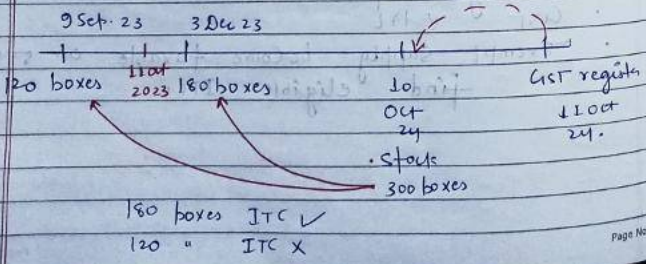 9 Sept. 23 3 Dec 23
120 boxes 11 Oct 2023 180 boxes 10 Oct 24 GST registn 11 Oct 24.
. Stock
300 boxes
180 boxes ITC ✓
120 " ITC X
Page No